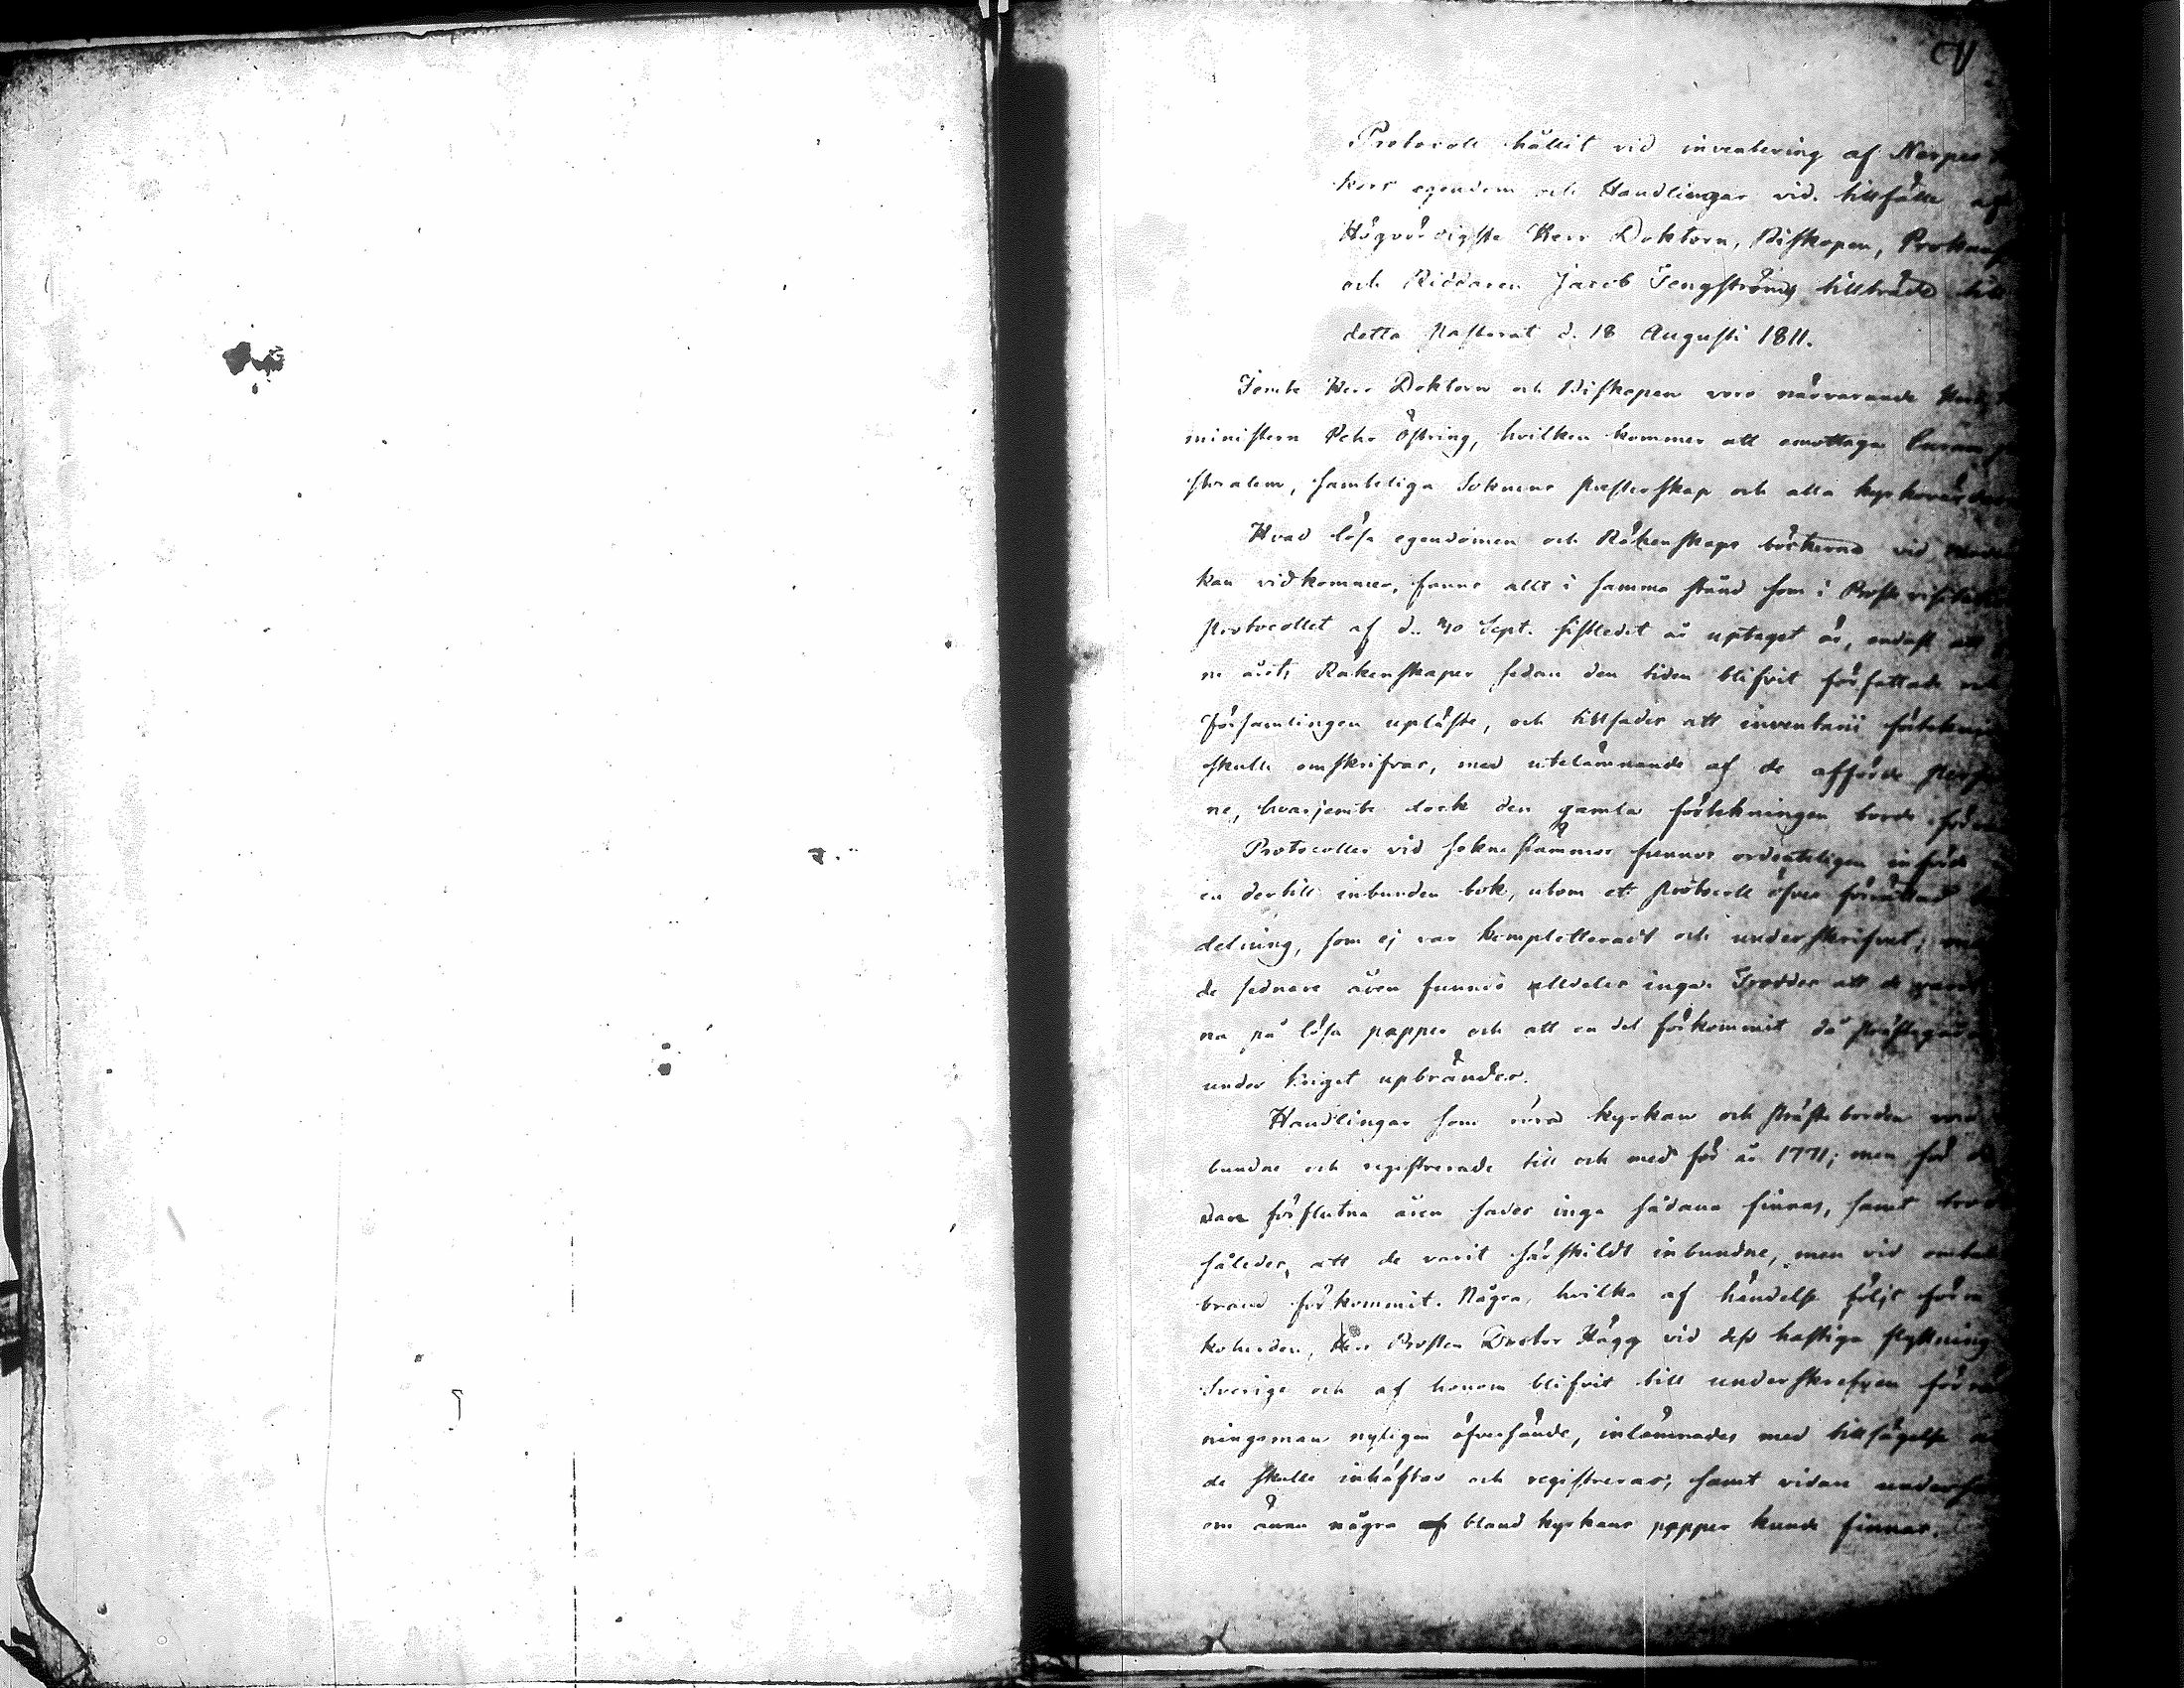 Protocoll hållit vid inventering af Nerpes
kors egendom och Handlingar vid tillfälle af
Högvördigste Herr Doktorn, Biskopen, Prokans
och Riddaren Jacob Tengströms tillträde till
detta Pastorat d. 18 Augusti 1811.
Jemte Herr Doktorn och Biskopen voro närvarande
ministern Pehr Östring, hvilken kommer att emottaga Curam pa
storalem, samteliga Soknens Presterskap och alla kyrkovärdar
Hvad lösa egendomen och Räkenskaps böckerna vid
kan vidkommer, fanns allt i samma stånd som i Prosts visitations
protocollet af d. Sept. sistledit år uptaget är, endast att
ne årets Räkenskaper sedan den tiden blifvit författade och
Församlingen upläste, och tillsades att inventarii förtekning
skulle omskrifvas, med utelämnande af de afförde
ne, hvarjemte dock den gamla förtekningen borde förvaras
Protocoller vid Sokne stämmor funnos ordenteligen införde
en dertill inbunden bok, utom et protocoll öfver förrättad
delning, som ej var kompletteradt och underskrifvet;
de sednare åren funnos alldeles inga. Troddes att de
na på lösa papper och att en del förkommit då prästegården
under kriget upbrändes.
Handlingar som röra kyrkan och Präste borden voro
bundne och registrerade till och med för år 1771; men för de
dare förflutna åren sades inga sådana finnas, samt
således, att de varit särskildt inbundne, men vid
brand förkommit. Några, hvilka af händelse följt förra
koherden, Herr Prosten Doctor Hägg vid dess hastiga flyttning
Sverige och af honom blifvit till underskrefven
ningsman nyligen öfversände, inlämnades med tillsägelse
de skulle inhäftas och registreras, samt vidare
om ännu några bland kyrkans papper kunde finnas.